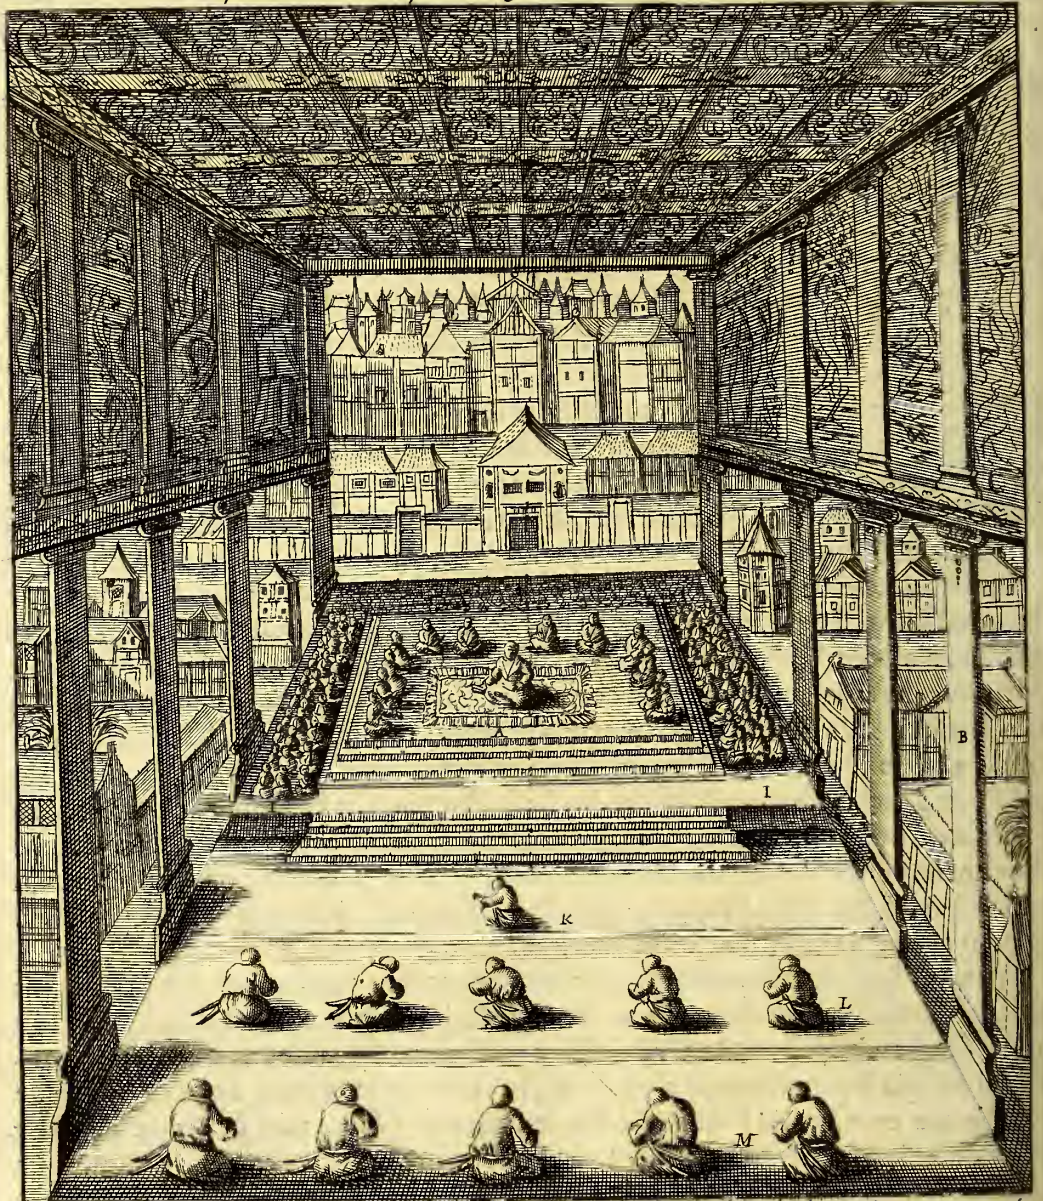 A
B
I
K
L
M